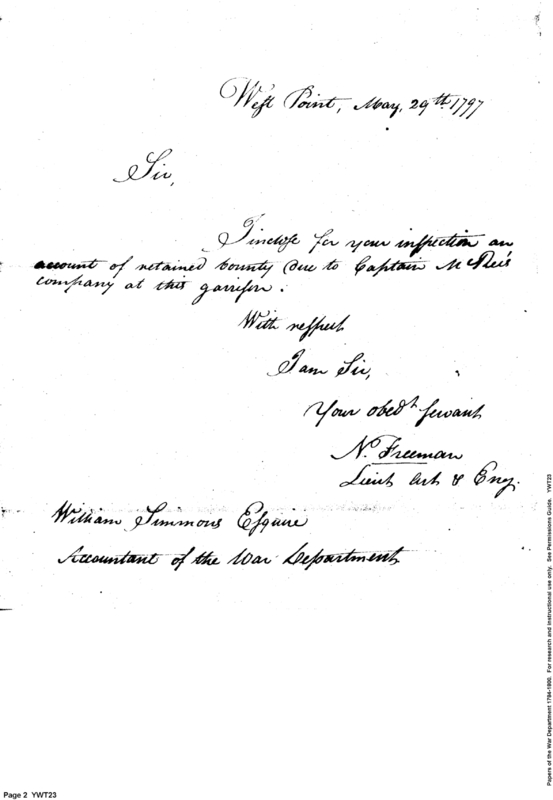 West Point, May, 29th 1797
Sir,
I inclose for your inspection an
account of retained bounty due to Captain
company at this garrison.
With respect
I am Sir,
Your obedt Servant
N. Freeman
Lieut Art & Eng.
William Simmons Esquire
Accountant of the War Department
Page 2 YWT23
Papers of the War Department 1784-1800. For research and instructional use only. See Permissions Guide. YWT23